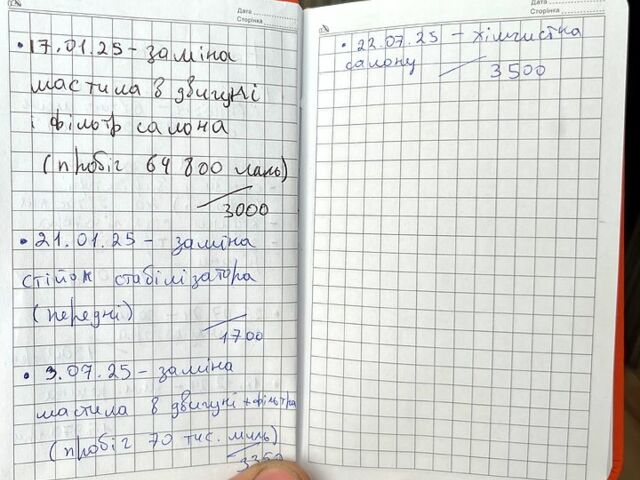 Дата
Сторінка
• 17.01.25 – заміна
мастила в двигуні
і фільтр салона
(пробіг 64 800 миль)
3000
• 21.01.25 – заміна
стійок стабілізатора
(передні)
1700
• 3.07.25 – заміна
мастила в двигуні + фільтра
(пробіг 70 тис. миль)
3350
Дата
Сторінка
• 22.07.25 – хімчистка
салону
3500